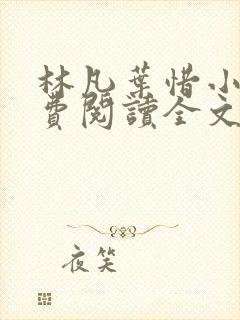 林凡葉惜小
費閱讀全文
夜笑